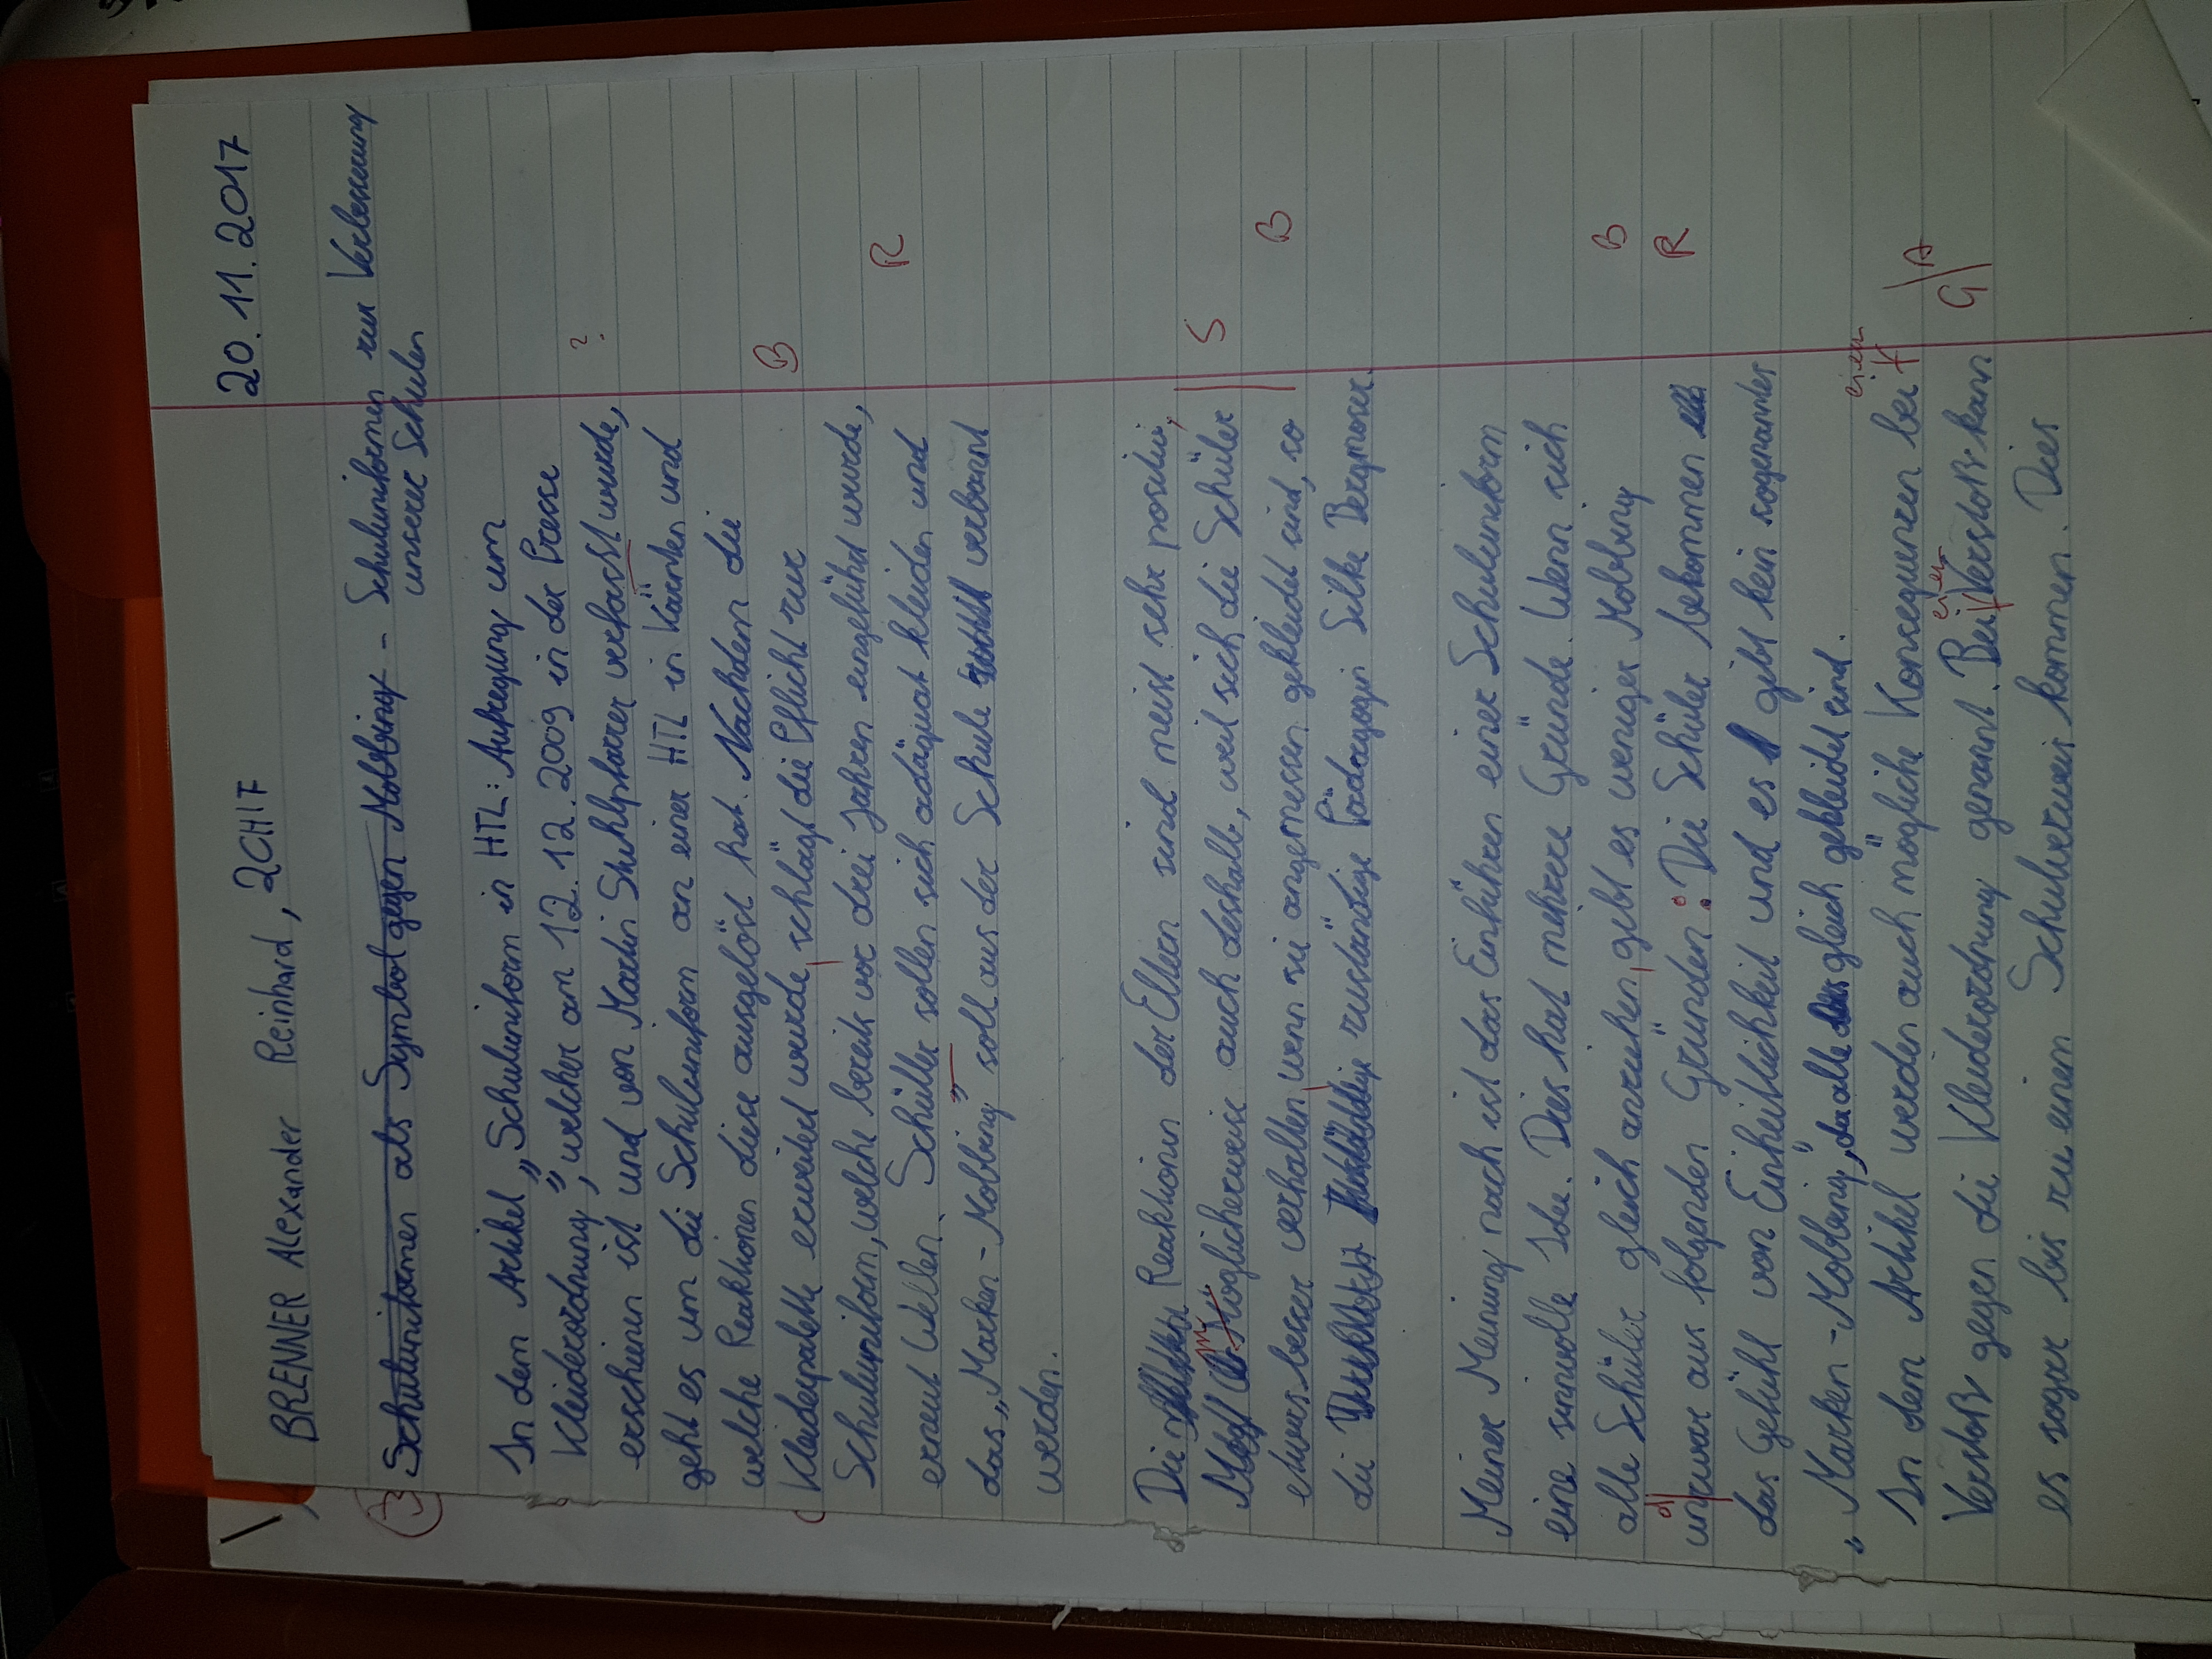 20.11.2017
BRENNER Alexander Reinhard, 2CHIF
3 Schuluniformen als Symbol gegen Mobbing - Schuluniformen zur Verbesserung
unserer Schulen
In dem Artikel „Schuluniform in HTL: Aufregung um
Kleiderordnung", welcher am 12.12.2009 in der Presse
erschienen ist und von Martin Stuhlpfarrer verfasst wurde, ?
geht es um die Schuluniform an einer HTL in Kärnten und
welche Reaktionen diese ausgelöst hat. Nachdem die
Kleiderpalette erweitert wurde, schlägt die Pflicht zur B
Schuluniform, welche bereits vor drei Jahren eingeführt wurde,
erneut Wellen. Schüller sollen sich adäquat kleiden und R
das „Marken-Mobbing" soll aus der Schule verbannt
werden.
Die Reaktionen der Eltern sind meist sehr positiv,
m Möglicherweise auch deshalb, weil sich die Schüler S
etwas besser verhalten, wenn sie angemessen gekleidet sind, so B
die zuständige Pädagogin Silke Bergmoser.
Meiner Meinung nach ist das Einführen einer Schuluniform
eine sinnvolle Idee. Dies hat mehrere Gründe. Wenn sich
alle Schüler gleich anziehen, gibt es weniger Mobbing B
und zwar aus folgenden Gründen: Die Schüler bekommen R
das Gefühl von Einheitlichkeit und es gibt kein sogenanntes
„Marken-Mobbing", da alle gleich gekleidet sind.
In dem Artikel werden auch mögliche Konsequenzen bei einem
Verstoß gegen die Kleiderordnung genannt. Bei einem Verstoß kann G/A
es sogar bis zu einem Schulverweis kommen. Dies